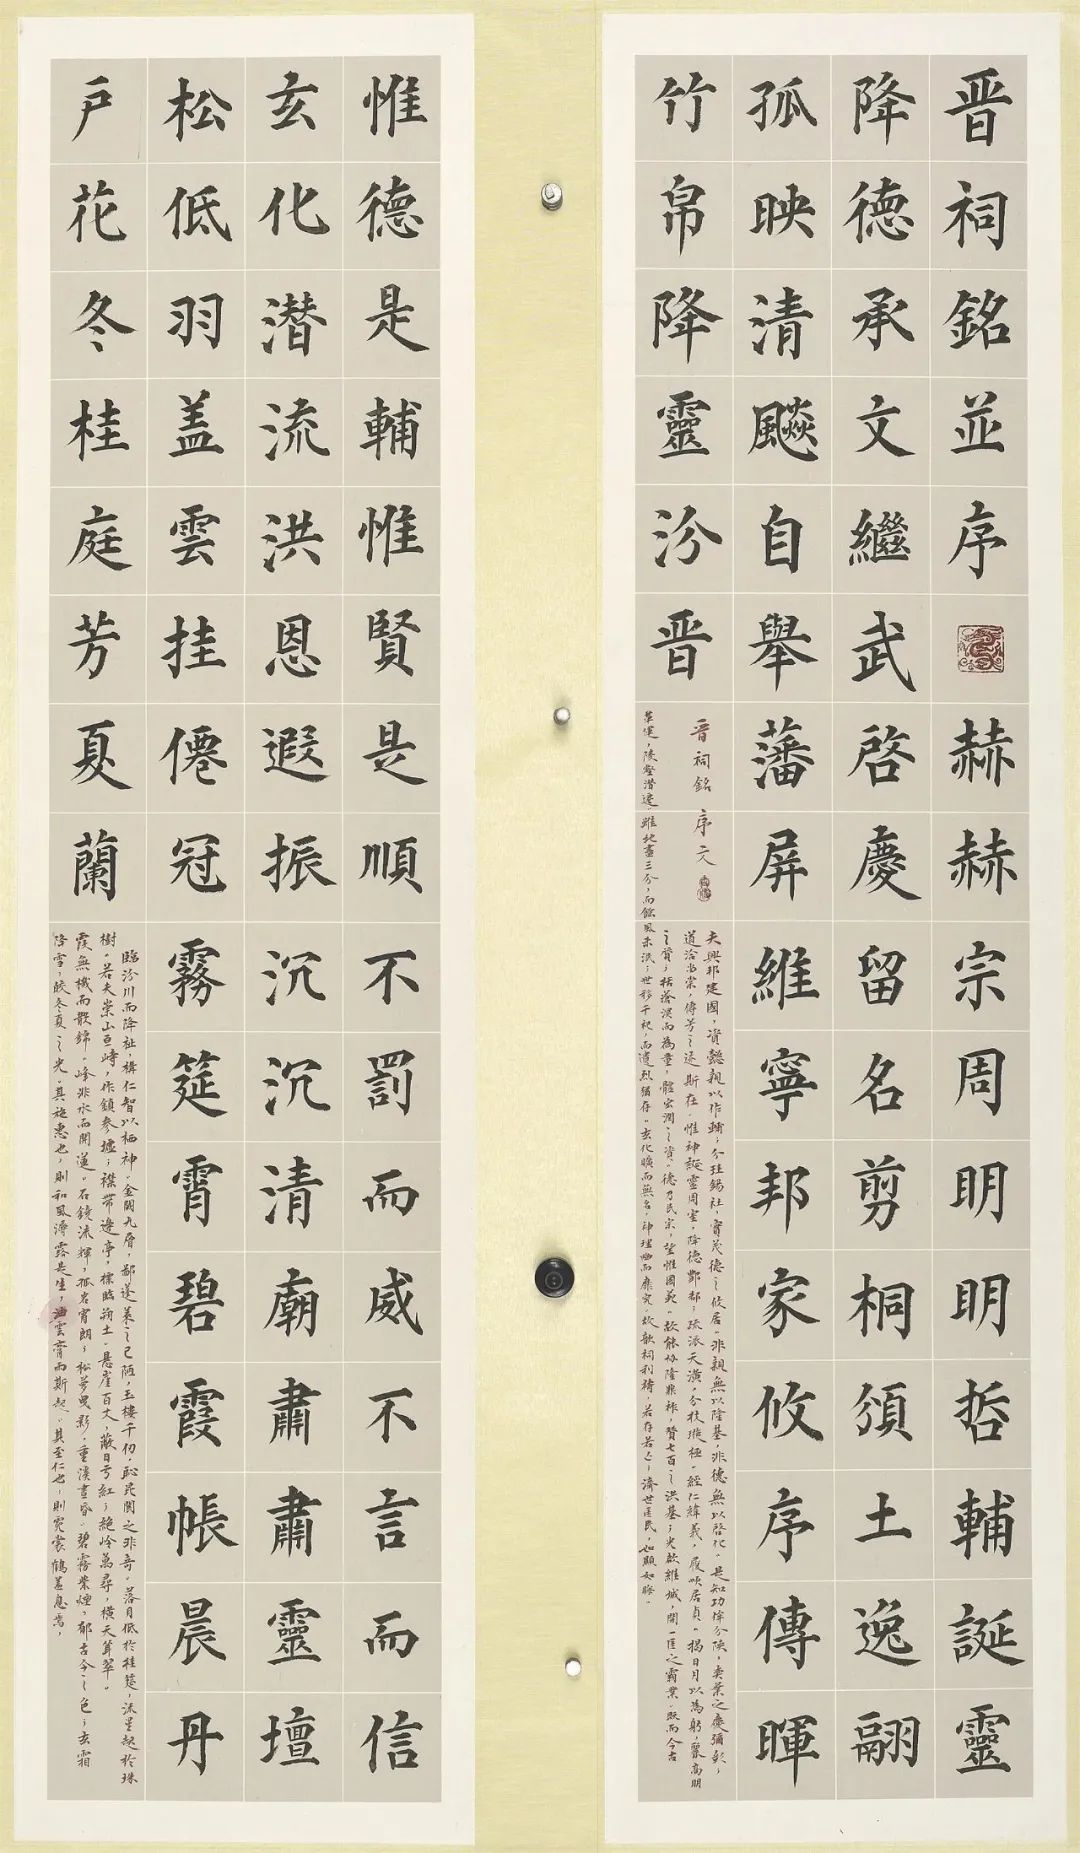 晋祠銘並序赫赫宗周明明哲輔誕靈
降德承文繼武啓慶留名剪桐頒土逸翮
孤映清飈自舉藩屏維寧邦家攸序傳暉
竹帛降靈汾晋
晋祠銘 序文
夫興邦建國，資懿親以作輔；分珪錫社，實茂德之攸居。非親無以隆基，非德無以啓化。是知功侔分陝，奕葉之慶彌彰；
道洽留棠，傳芳之迹斯在。惟神誕靈周室，降德酆都；疏派天潢，分枝璇極。經仁緯義，履順居貞。揭日月以為躬，麗高明
之質；括滄溟而為量，體宏潤之資。德乃民宗，望惟國範。故能協隆鼎祚，贊七百之洪基；光啟維城，開一匡之霸業。既而今古
革運，陵壑潜遷。雖地盡三分，而餘風未泯；世移千祀，而遺烈猶存。玄化曠而無名，神理幽而靡究。故歆祠利禱，若存若亡；濟世匡民，如顯如晦。
惟德是輔惟賢是順不罰而威不言而信
玄化潜流洪恩遐振沉沉清廟肅肅靈壇
松低羽盖雲挂僊冠霧筵霄碧霞帳晨丹
戶花冬桂庭芳夏蘭
臨汾川而降祉，構仁智以栖神。金闕九層，鄙蓬萊之已陋；玉樓千仞，恥崑閬之非奇。落月低於桂筵，流星起於珠
樹。若夫崇山亘峙，作鎮參墟；襟帶邊亭，標臨朔土。懸崖百丈，蔽日亏紅；絶岭萬尋，横天聳翠。
霞無機而散錦，峰非水而開蓮。石鏡流輝，孤岩宵朗；松蘿曳影，重溪晝昏。碧霧紫煙，鬱古今之色；玄霜
降雪，皎冬夏之光。其施惠也，則和風溽露是生，油雲膏雨斯起。其至仁也，則霓裳鶴蓋息焉，